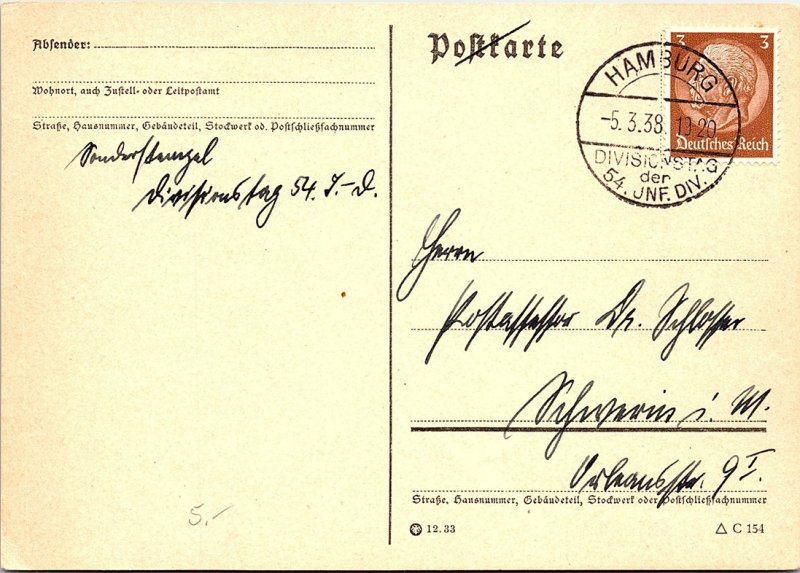 Absender:
Wohnort, auch Zustell- oder Leitpostamt
Straße, Hausnummer, Gebäudeteil, Stockwerk od. Postschließfachnummer
Sonderstempel
Divisionstag 54. J.-D.
Postkarte
3 3
Deutsches Reich
HAMBURG
-5.3.38. 19-20
DIVISIONSTAG
der
54. JNF. DIV.
Herrn
Postassessor Dr. Schlosser
Schwerin i. M.
Orleansstr. 9 I.
Straße, Hausnummer, Gebäudeteil, Stockwerk oder Postschließfachnummer
5.-
12.33
C 154